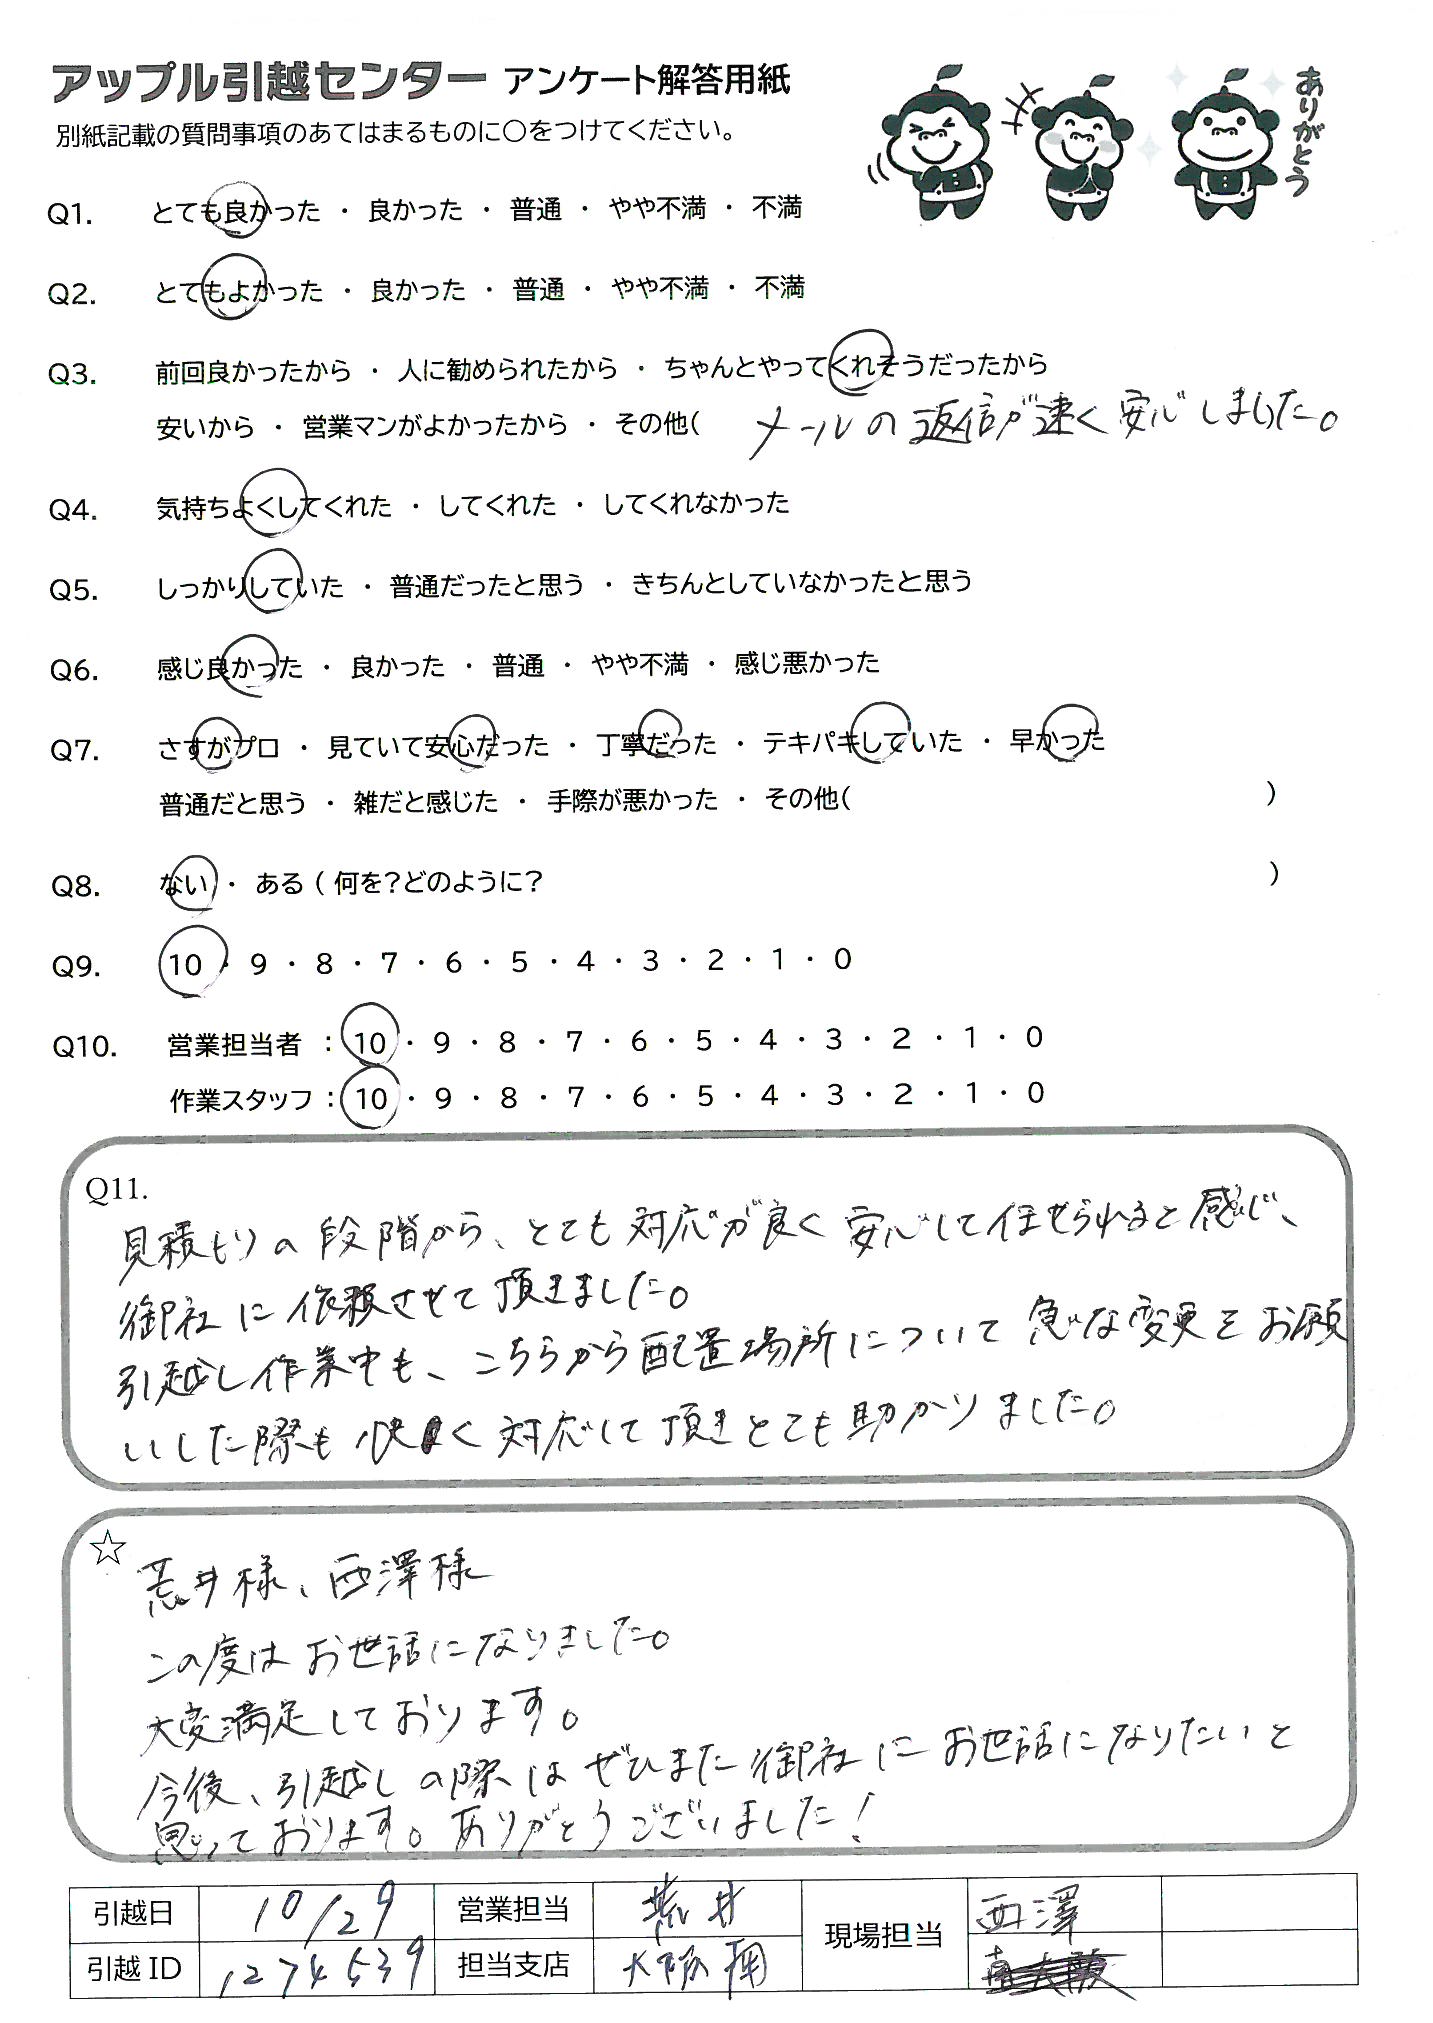 アップル引越センター アンケート解答用紙
ありがとう
別紙記載の質問事項のあてはまるものに〇をつけてください。
Q1. とても良かった ・ 良かった ・ 普通 ・ やや不満 ・ 不満
Q2. とてもよかった ・ 良かった ・ 普通 ・ やや不満 ・ 不満
Q3. 前回良かったから ・ 人に勧められたから ・ ちゃんとやってくれそうだったから
安いから ・ 営業マンがよかったから ・ その他( メールの返信が速く安心しました。
Q4. 気持ちよくしてくれた ・ してくれた ・ してくれなかった
Q5. しっかりしていた ・ 普通だったと思う ・ きちんとしていなかったと思う
Q6. 感じ良かった ・ 良かった ・ 普通 ・ やや不満 ・ 感じ悪かった
Q7. さすがプロ ・ 見ていて安心だった ・ 丁寧だった ・ テキパキしていた ・ 早かった
普通だと思う ・ 雑だと感じた ・ 手際が悪かった ・ その他( )
Q8. ない ・ ある ( 何を?どのように? )
Q9. 10 ・ 9 ・ 8 ・ 7 ・ 6 ・ 5 ・ 4 ・ 3 ・ 2 ・ 1 ・ 0
Q10. 営業担当者 : 10 ・ 9 ・ 8 ・ 7 ・ 6 ・ 5 ・ 4 ・ 3 ・ 2 ・ 1 ・ 0
作業スタッフ : 10 ・ 9 ・ 8 ・ 7 ・ 6 ・ 5 ・ 4 ・ 3 ・ 2 ・ 1 ・ 0
Q11.
見積もりの段階から、とても対応が良く安心して任せられると感じ、
御社に依頼させて頂きました。
引越し作業中も、こちらから配置場所について急な変更をお願
いした際も快く対応して頂きとても助かりました。
☆
荒井様、西澤様
この度はお世話になりました。
大変満足しております。
今後、引越しの際はぜひまた御社にお世話になりたいと
思っております。ありがとうございました!
引越日 10/29 営業担当 荒井 現場担当 西澤
引越ID 1274539 担当支店 大阪南